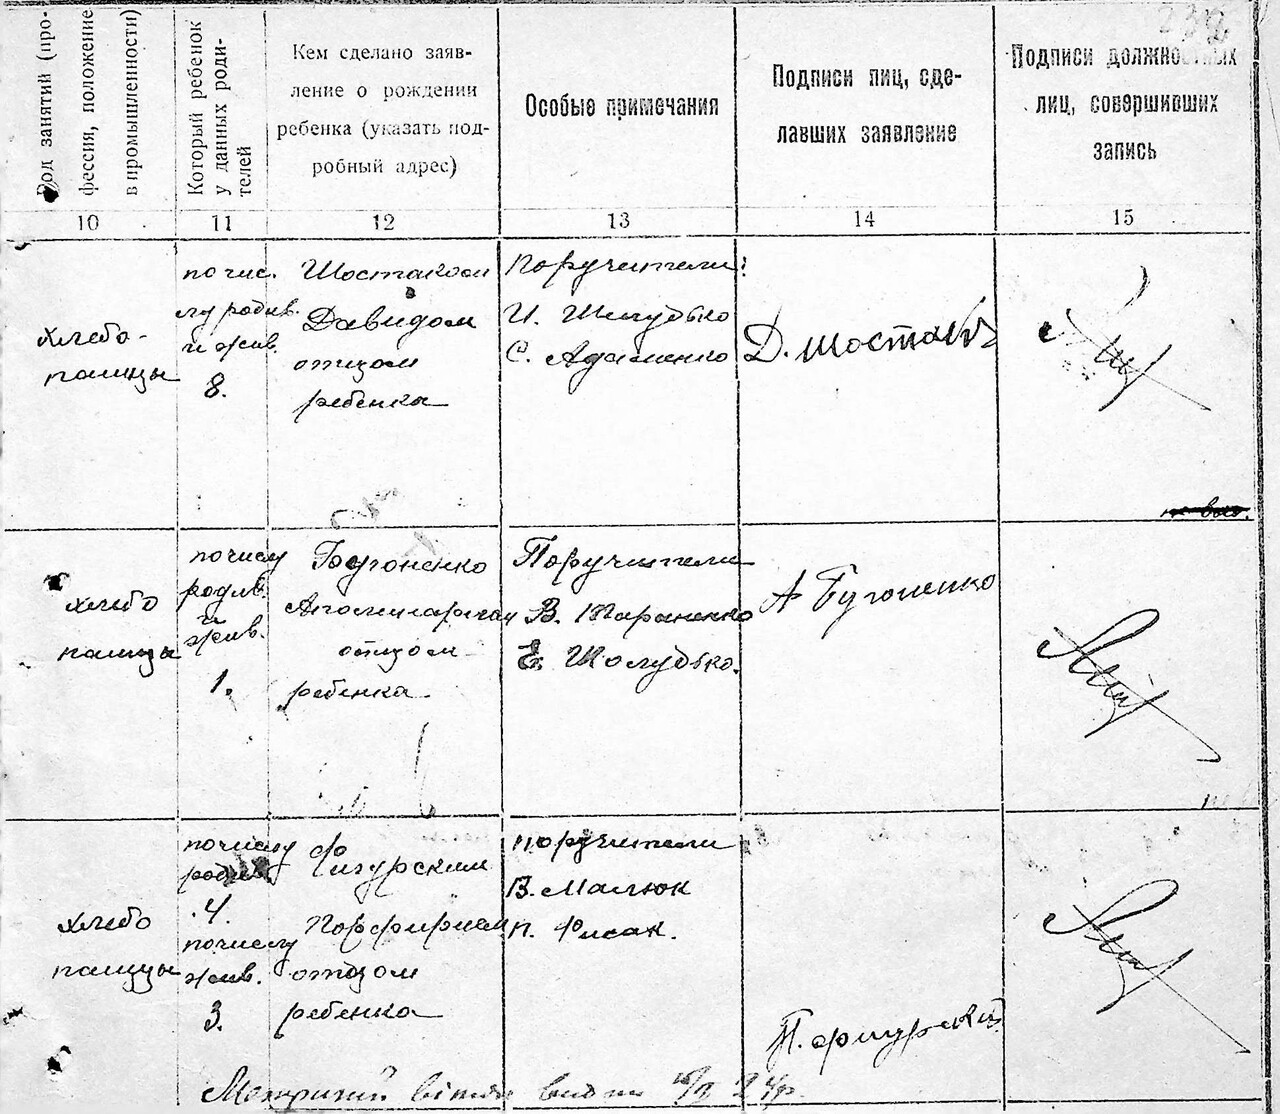 232
Род занятий (про-
фессия, положение
в промышленности)
Который ребенок
у данных роди-
телей
Кем сделано заяв-
ление о рождении
ребенка (указать под-
робный адрес)
Особые примечания
Подписи лиц, сде-
лавших заявление
Подписи должностных
лиц, совершивших
запись
10
11
12
13
14
15
хлебо-
пашцы
по чис.
лу родив.
и жив.
8.
Шостаком
Давидом
отцом
ребенка
Поручители:
И. Шелудько
С. Адаменко
Д. Шостак
хлебо
пашцы
по числу
родив.
и
жив.
1.
Бугоненко
отцом
ребенка
Поручители
В. Тараненко
Е. Шолудько.
А Бугоненко
хлебо
пашцы
по числу
родив
4.
по числу
жив.
3.
Фигурским
Порфирием
отцом
ребенка
поручители
В. Малюк
П. Фисак.
П. Фигурский
24 р.